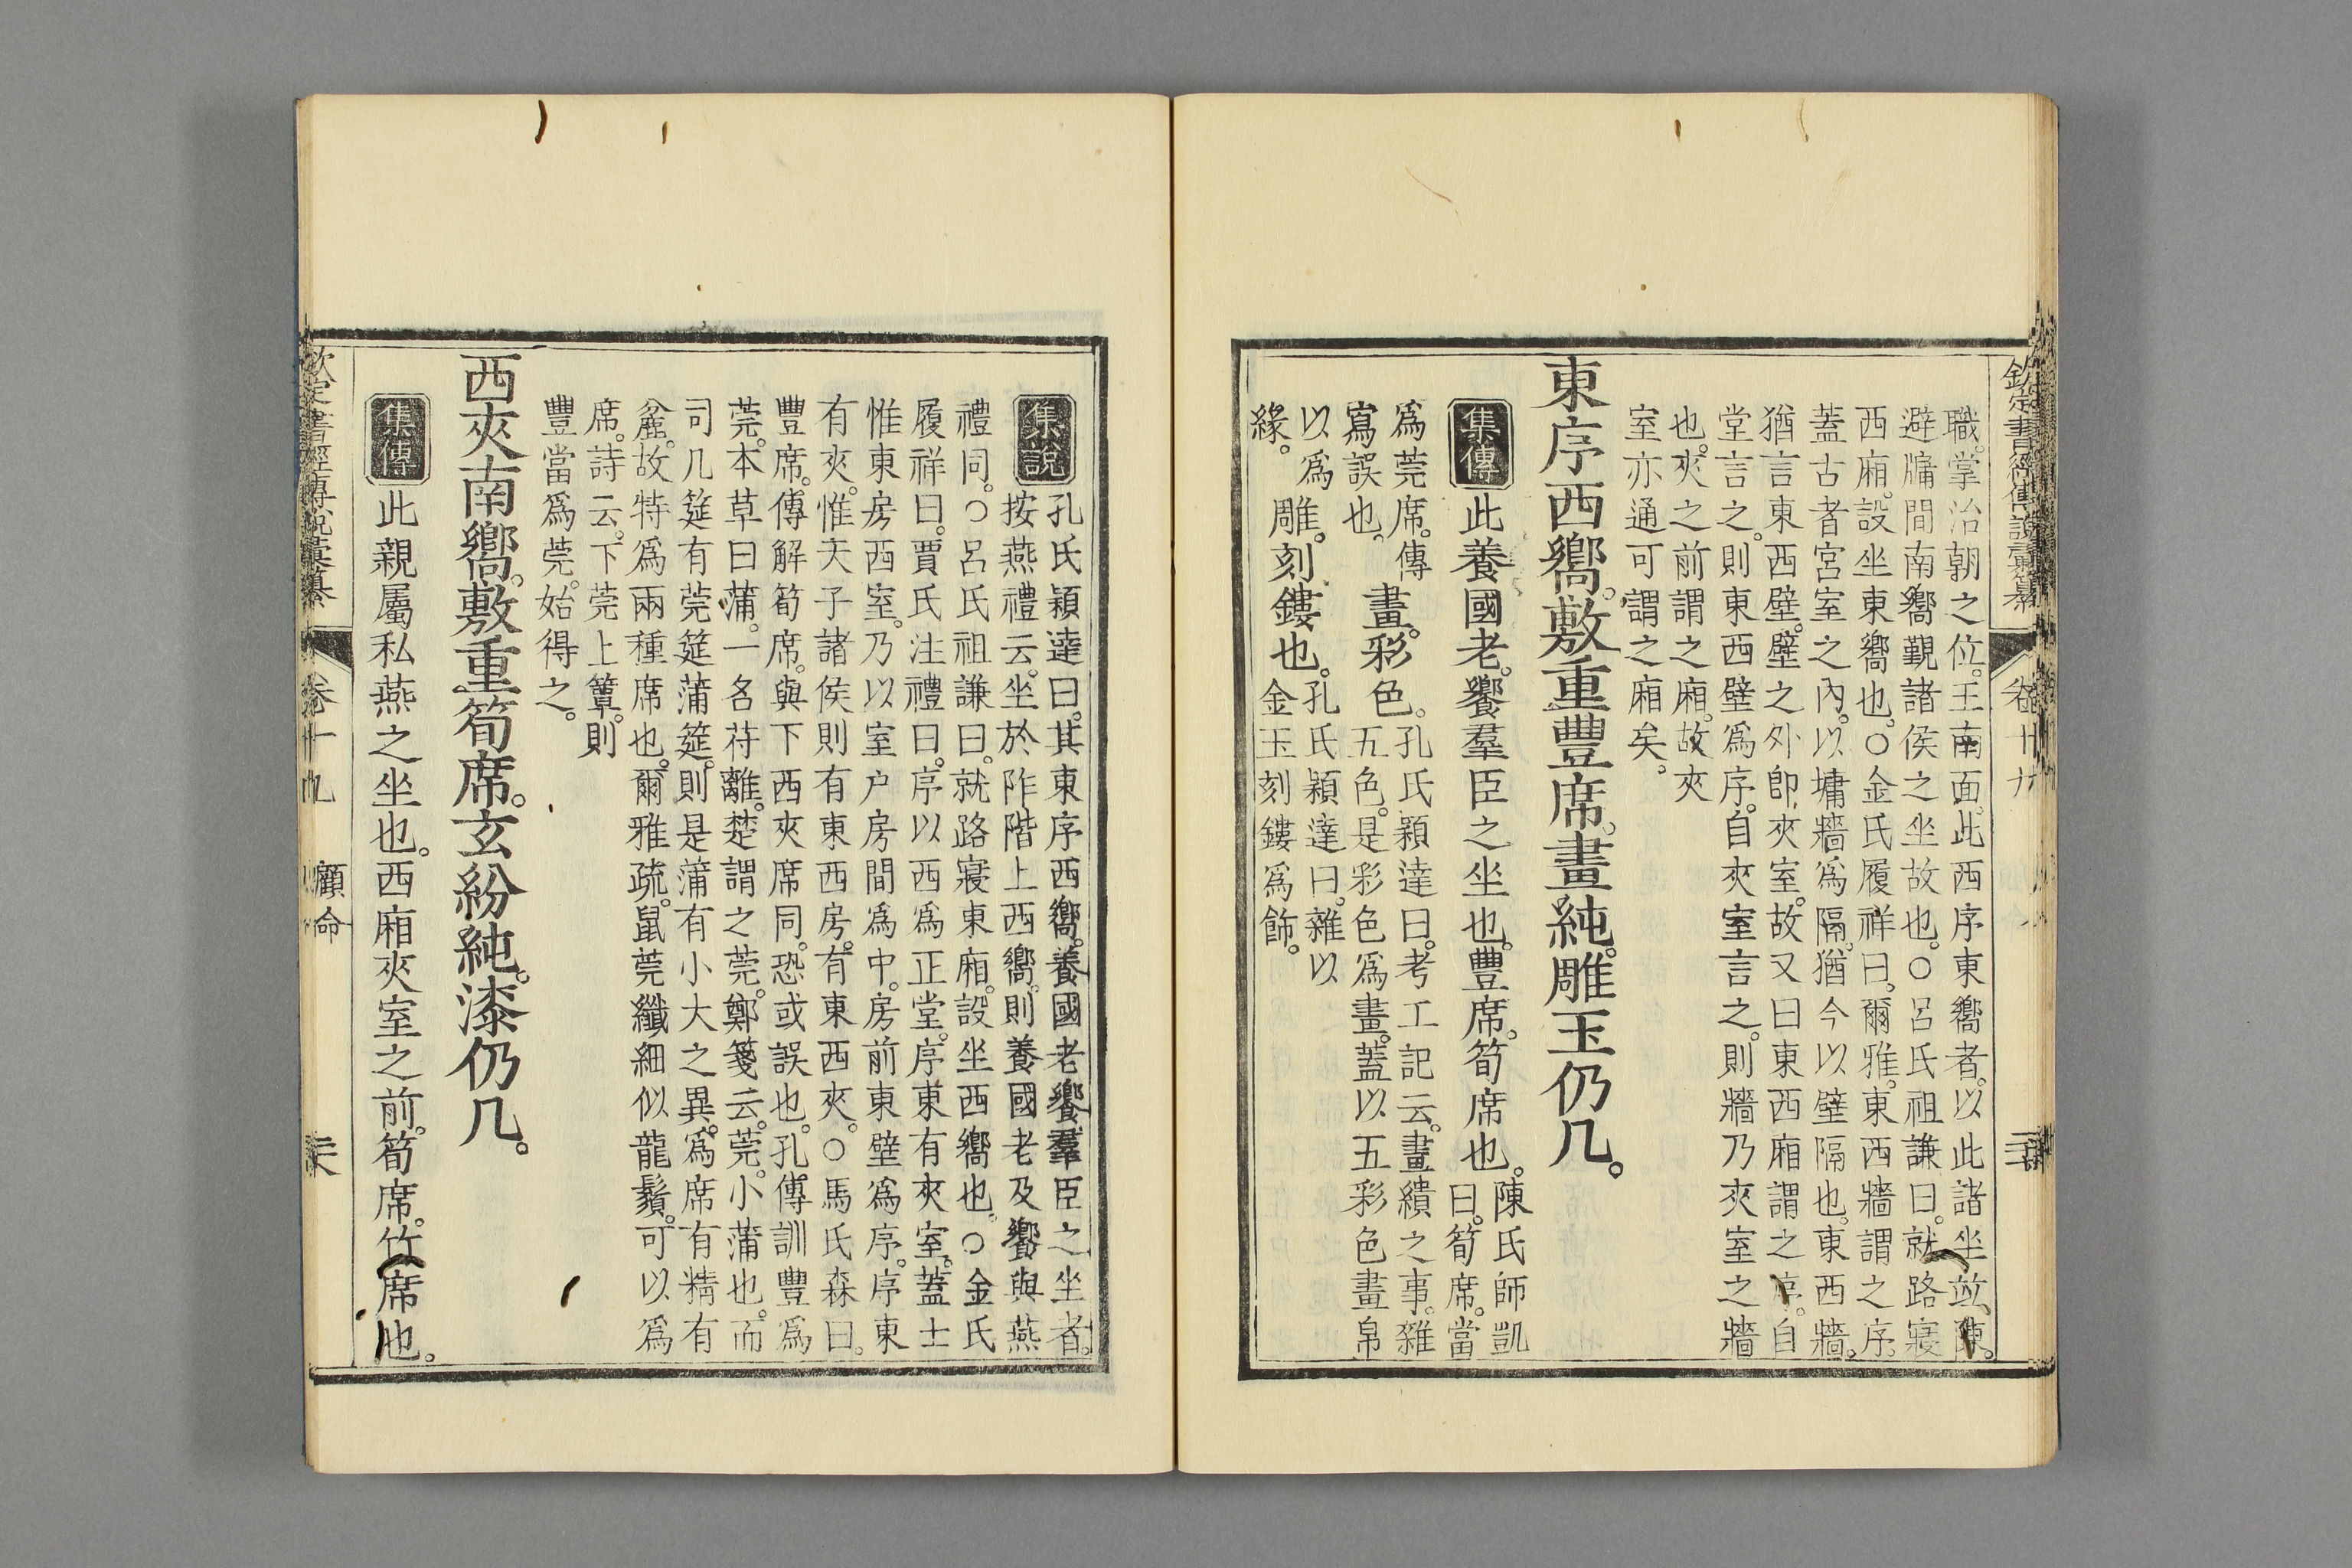 欽定書經傳說彙纂　卷十九
職。掌治朝之位。王南面。此西序東嚮者。以此諸坐竝陳。
避牖間南嚮覲諸侯之坐故也。○呂氏祖謙曰。就路寢
西廂。設坐東嚮也。○金氏履祥曰。爾雅。東西牆謂之序。
蓋古者宮室之內。以墉牆爲隔。猶今以壁隔也。東西牆。
猶言東西壁。壁之外卽夾室。故又曰東西廂謂之序。自
堂言之。則東西壁爲序。自夾室言之。則牆乃夾室之牆
也。夾之前謂之廂。故夾
室亦通可謂之廂矣。
東序西嚮。敷重豐席。畫純。雕玉仍几。
集傳　此養國老。饗羣臣之坐也。豐席。筍席也。陳氏師凱曰。筍席。當
爲莞席。傳寫誤也。畫。彩色。孔氏穎達曰。考工記云。畫繢之事。雜五色。是彩色爲畫。蓋以五彩色畫帛
以爲緣。雕。刻鏤也。孔氏穎達曰。雜以金玉刻鏤爲飾。
集說　孔氏穎達曰。其東序西嚮。養國老饗羣臣之坐者。
按燕禮云。坐於阼階上西嚮。則養國老及饗與燕
禮同。○呂氏祖謙曰。就路寢東廂。設坐西嚮也。○金氏
履祥曰。賈氏注禮曰。序以西爲正堂。序東有夾室。蓋士
惟東房西室。乃以室戶房間爲中。房前東壁爲序。序東
有夾。惟天子諸侯則有東西房。有東西夾。○馬氏森曰。
豐席。傳解筍席。與下西夾席同。恐或誤也。孔傳訓豐爲
莞。本草曰蒲。一名苻離。楚謂之莞。鄭箋云。莞。小蒲也。而
司几筵有莞筵蒲筵。則是蒲有小大之異。爲席有精有
麤。故特爲兩種席也。爾雅疏。鼠莞纖細似龍鬚。可以爲
席。詩云。下莞上簟。則
豐當爲莞。始得之。
西夾南嚮。敷重筍席。玄紛純。漆仍几。
集傳　此親屬私燕之坐也。西廂夾室之前。筍席。竹席也。
欽定書經傳說彙纂　卷十九　顧命